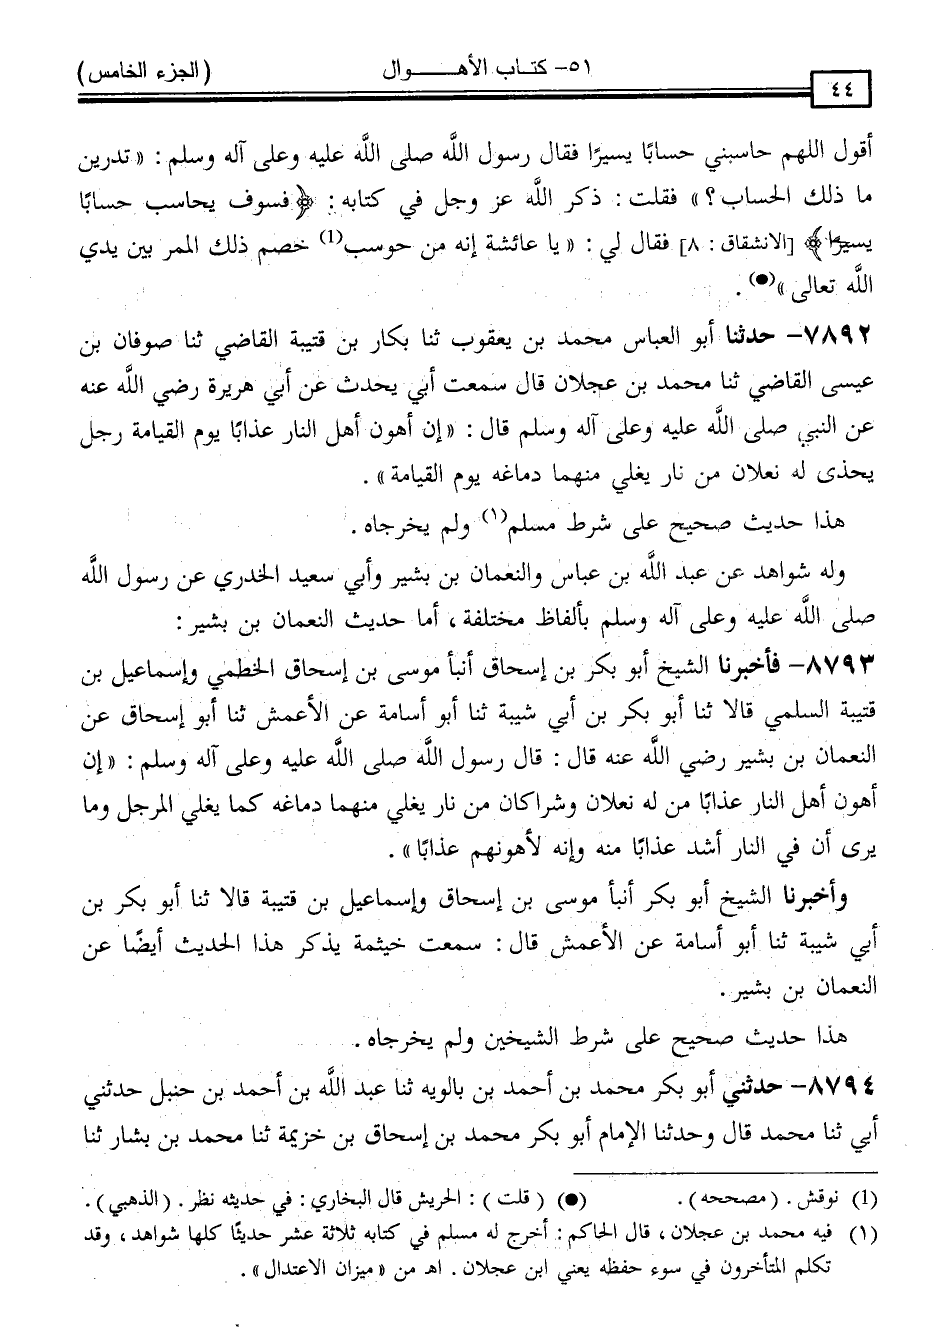 ٤٤
٥١- كتـاب الأهـــــوال
(الجزء الخامس)
أقول اللهم حاسبني حسابًا يسيرًا فقال رسول اللَّه صلى اللَّه عليه وعلى آله وسلم : « تدرين
ما ذلك الحساب ؟ » فقلت : ذكر اللَّه عز وجل في كتابه : ﴿ فسوف يحاسب حسابًا
يسيرًا ﴾ [الانشقاق : ٨] فقال لي : « يا عائشة إنه من حوسب(1) خصم ذلك الممر بين يدي
اللَّه تعالى »(●) .
٧٨٩٢- حدثنا أبو العباس محمد بن يعقوب ثنا بكار بن قتيبة القاضي ثنا صوفان بن
عيسى القاضي ثنا محمد بن عجلان قال سمعت أبي يحدث عن أبي هريرة رضي اللَّه عنه
عن النبي صلى اللَّه عليه وعلى آله وسلم قال : « إن أهون أهل النار عذابًا يوم القيامة رجل
يحذى له نعلان من نار يغلي منهما دماغه يوم القيامة » .
هذا حديث صحيح على شرط مسلم(١) ولم يخرجاه .
وله شواهد عن عبد اللَّه بن عباس والنعمان بن بشير وأبي سعيد الخدري عن رسول اللَّه
صلى اللَّه عليه وعلى آله وسلم بألفاظ مختلفة ، أما حديث النعمان بن بشير :
٨٧٩٣- فأخبرنا الشيخ أبو بكر بن إسحاق أنبأ موسى بن إسحاق الخطمي وإسماعيل بن
قتيبة السلمي قالا ثنا أبو بكر بن أبي شيبة ثنا أبو أسامة عن الأعمش ثنا أبو إسحاق عن
النعمان بن بشير رضي اللَّه عنه قال : قال رسول اللَّه صلى اللَّه عليه وعلى آله وسلم : « إن
أهون أهل النار عذابًا من له نعلان وشراكان من نار يغلي منهما دماغه كما يغلي المرجل وما
يرى أن في النار أشد عذابًا منه وإنه لأهونهم عذابًا » .
وأخبرنا الشيخ أبو بكر أنبأ موسى بن إسحاق وإسماعيل بن قتيبة قالا ثنا أبو بكر بن
أبي شيبة ثنا أبو أسامة عن الأعمش قال : سمعت خيثمة يذكر هذا الحديث أيضًا عن
النعمان بن بشير .
هذا حديث صحيح على شرط الشيخين ولم يخرجاه .
٨٧٩٤- حدثني أبو بكر محمد بن أحمد بن بالويه ثنا عبد اللَّه بن أحمد بن حنبل حدثني
أبي ثنا محمد قال وحدثنا الإمام أبو بكر محمد بن إسحاق بن خزيمة ثنا محمد بن بشار ثنا
(1) نوقش . (مصححه) . (●) ( قلت ) : الحريش قال البخاري : في حديثه نظر . (الذهبي) .
(١) فيه محمد بن عجلان ، قال الحاكم : أخرج له مسلم في كتابه ثلاثة عشر حديثًا كلها شواهد ، وقد
تكلم المتأخرون في سوء حفظه يعني ابن عجلان . اهـ من « ميزان الاعتدال » .